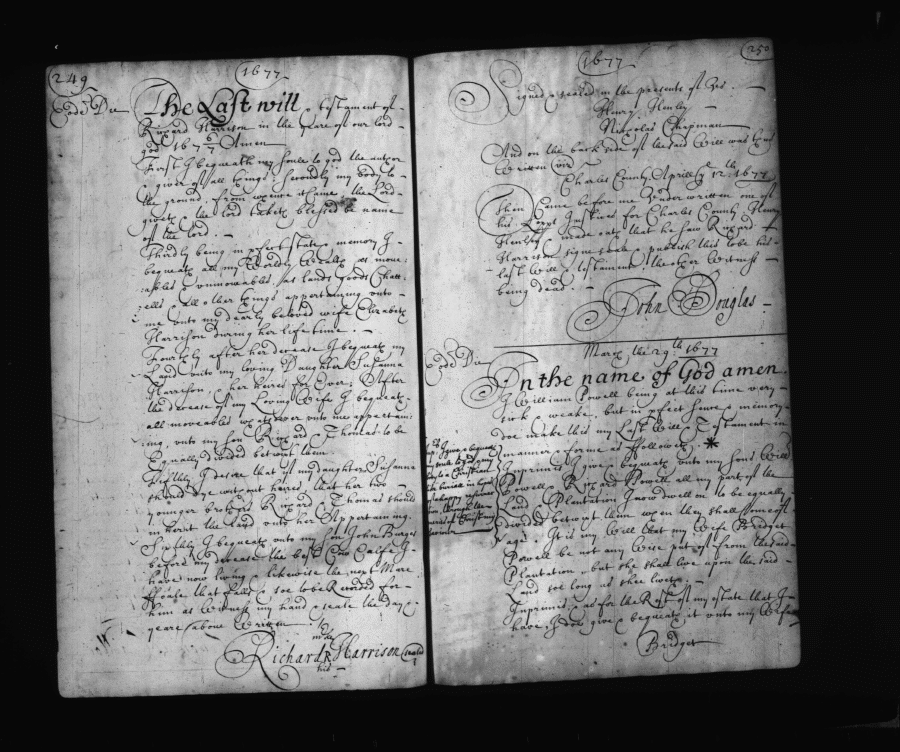 249
1677
Eod: Die
The Last will & testament of
Richard Harrison in the yeare of our lord
god 167 6/7 Amen
First I bequeath my soule to god the author
& giver of all things: Secondly my body to
the ground from whence it came the Lord
giveth & the lord taketh blessed be name
of the lord.
Thirdly being in pfect state & memory I
bequeath all my Worldly Wealth as move:
:ables & unmoveables as lands Goods Chatt:
:ells & all other things appertaining unto
me unto my dearly beloved wife Elizabeth
Harrison during her life time.
Fourthly after her decease I bequeath my
Land unto my loving Daughter Susanna
Harrison & her heires for Ever: After
the decease of my Loving Wife I bequeath
all moveables whatsoever unto me appertain:
:ing unto my son Richard & Thomas to be
Equally devided betwixt them.
Fifthly I desire that if my daughter Susanna
should dye without heires, that her two
younger brothers Richard & Thomas should
inherit the land unto her Appertaining.
Sixthly I bequeath unto my son John Burges
before my decease the best Cow Calfe I
have now living & likewise the next Mare
ffoale that falls & soe to be Recorded for
him as Witness my hand & seale the day &
yeare above Written
Richard R Harrison (seald
his
marke
1677
250
Signed & sealed in the presents of us.
Henry Henley
Nicholas Chapman
And on the back side of the said Will was thus
Written viz
Charles County Aprill ye 12th 1677
Then Came before me Under written one of
his Lopps Justices for Charles County Henry
Henley & made oath that he saw Richard
Harrison signe seale & publish this to be his
last Will & testament the other Witness
being dead.
John Douglas
March the 29th: 1677
Eod: Die
In the name of God amen.
I William Powell being at this time very
sick & weake but in pfect sence & memory
doe make this my Last Will & Testament in
manner & forme as followeth: *
I give & bequeath
my soule to god my
body to a Christian
like buriall in hopes
of a happy
through the
merits of Christ my
Saviour
Imprimis I give & bequeath unto my sons Will
Powell & Richard Powell all my part of the
Land & Plantation I now dwell on to be equally
divided betwixt them when they shall come of
age. It is my Will that my Wife Bridget
Powell be not any Wise put of from the said
Plantation but she shall live upon the said
Land soe long as shee liveth.
Imprimis as for the Rest of my estate that I
have I doe give & bequeath it unto my Wife
Bridget